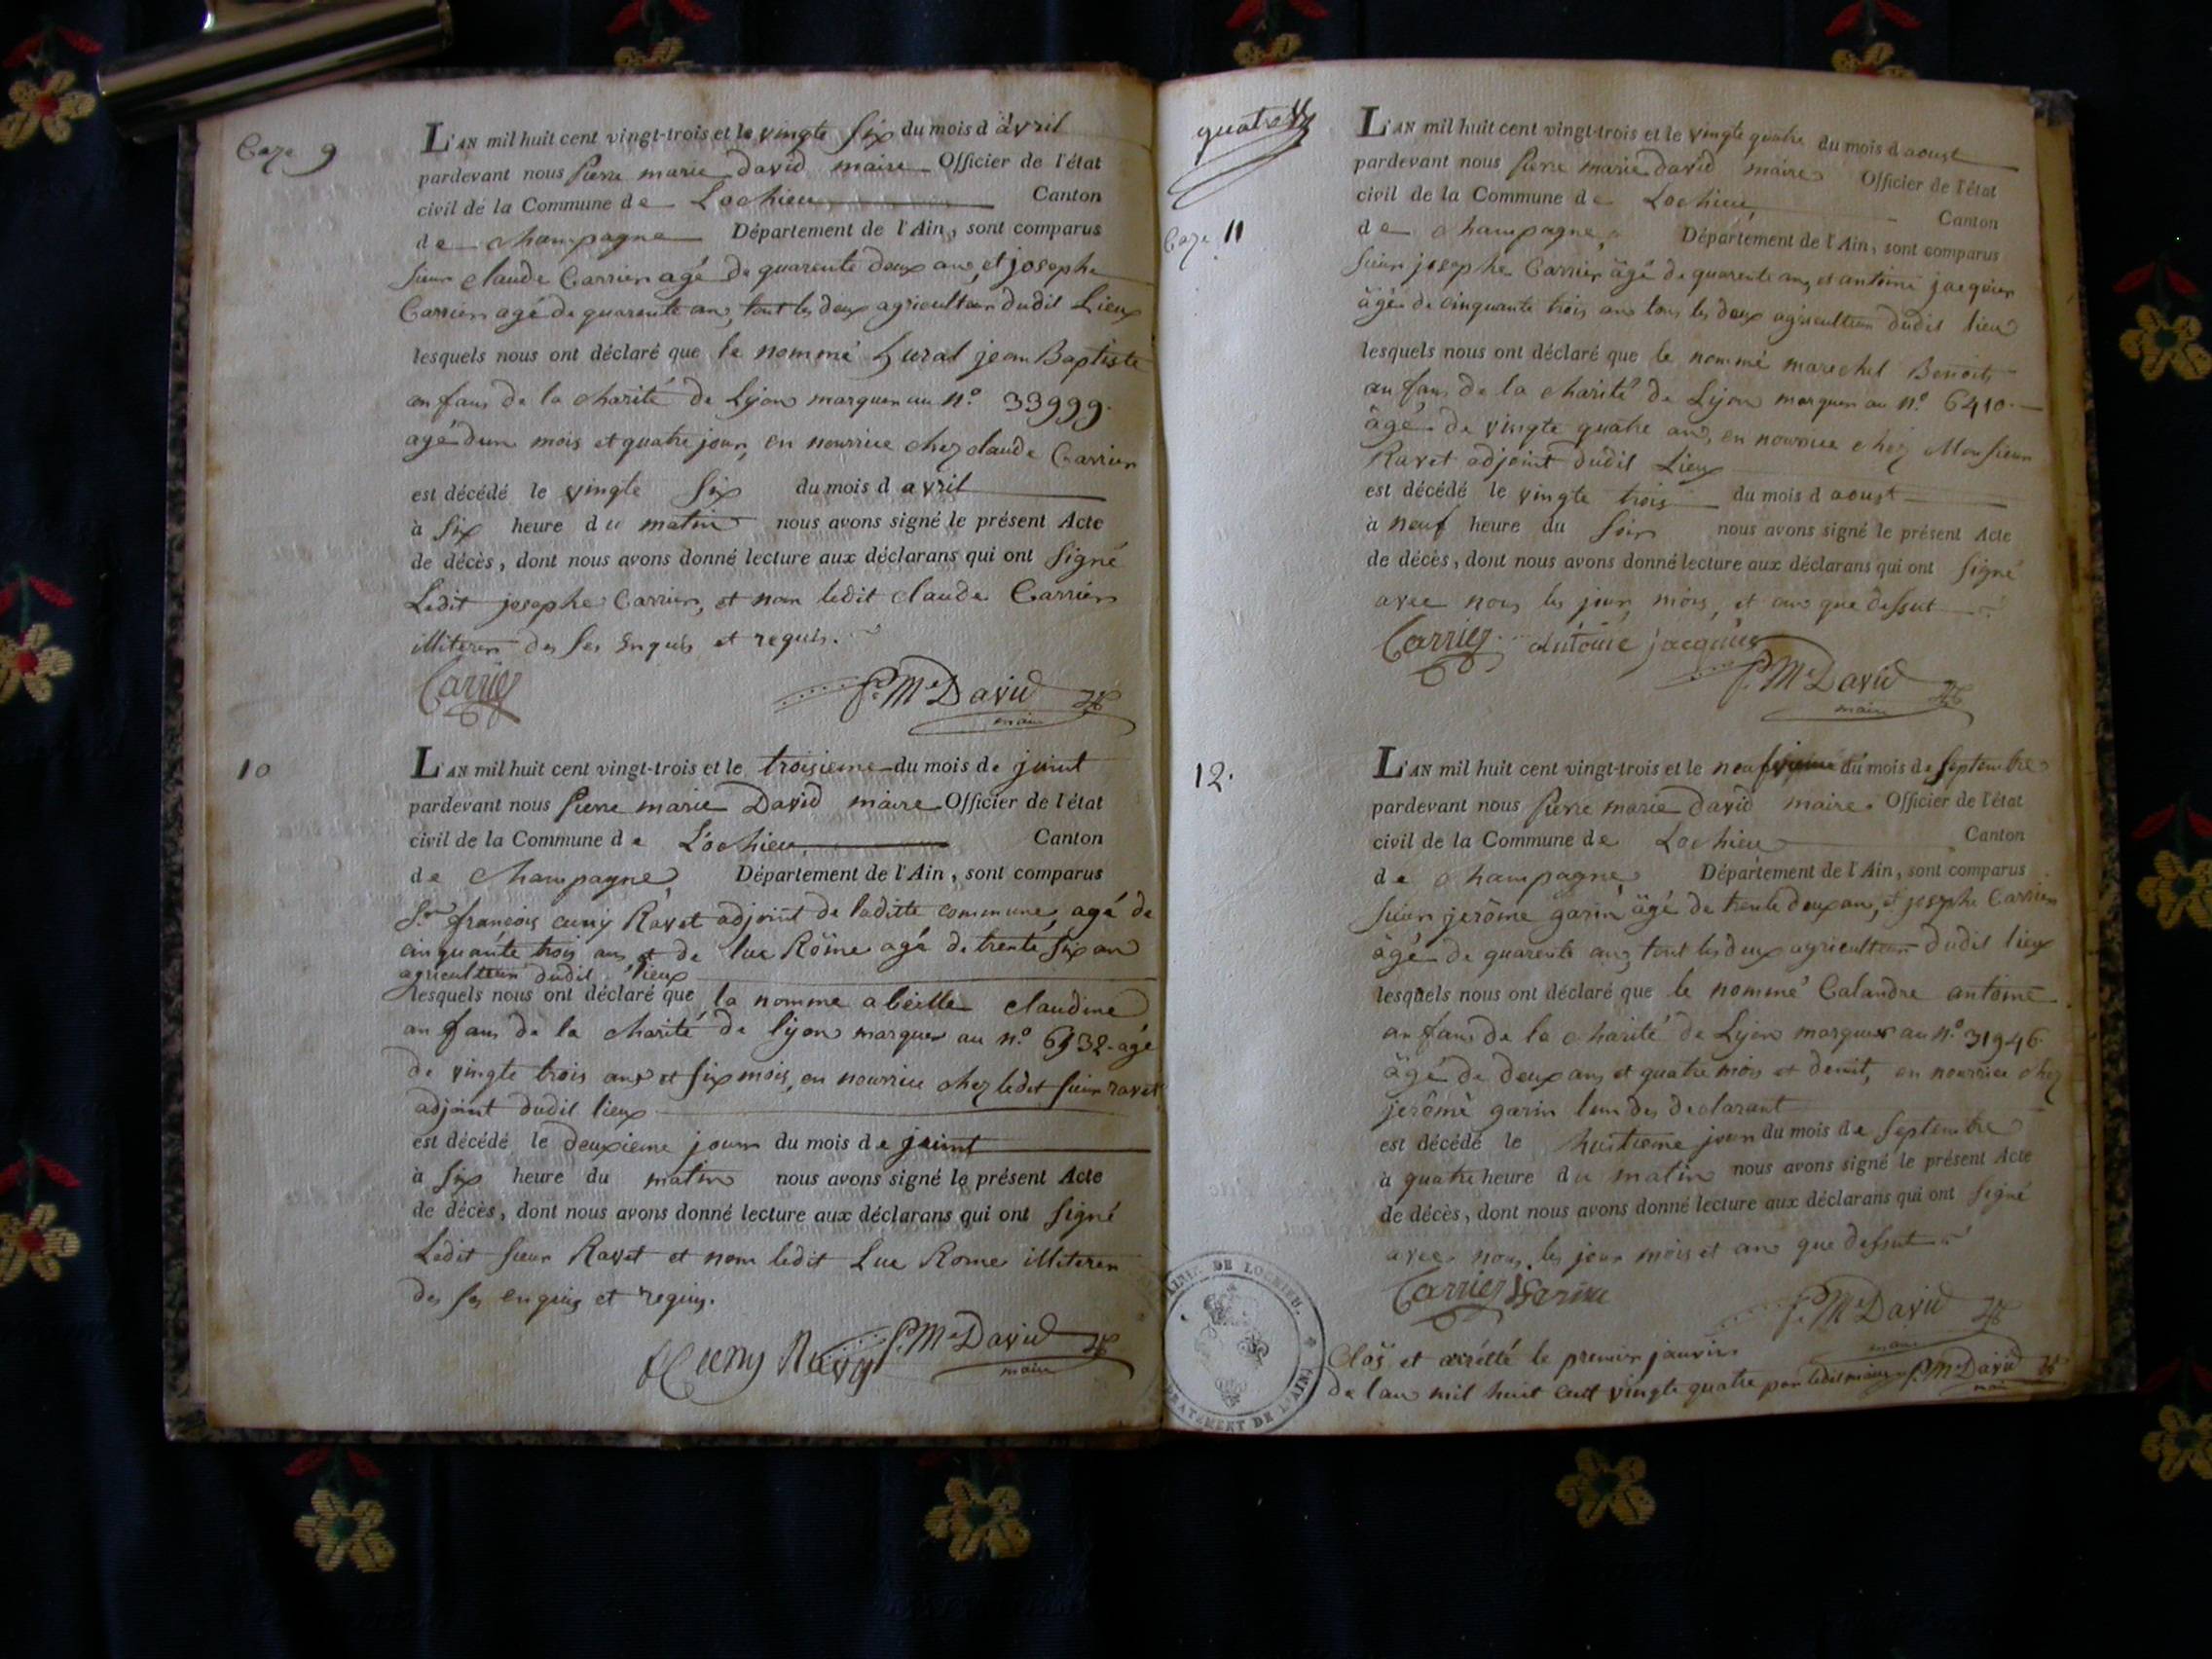 Caze 9
L'AN mil huit cent vingt-trois et le vingte six du mois d avril
pardevant nous pierre marie David maire Officier de l'état
civil de la Commune de Lochieu Canton
de champagne Département de l'Ain, sont comparus
sieur claude Carrier agé de quarente deux ans, et josephe
Carrier agé de quarente ans, tout les deux agriculteur dudit Lieux
lesquels nous ont déclaré que le nommé hural jean Baptiste
anfans de la charité de Lyon marquer au n.º 33999.
agé d'un mois et quatre jour, en nourrice chez claude Carrier
est décédé le vingte six du mois d avril
à six heure du matin nous avons signé le présent Acte
de décès, dont nous avons donné lecture aux déclarans qui ont signé
Ledit josephe Carrier, et non ledit claude Carrier
illiteren des ses enquis et requis.
Carrier
P. Me David
maire
10
L'AN mil huit cent vingt-trois et le troisieme du mois de juint
pardevant nous pierre marie David maire Officier de l'état
civil de la Commune de Lochieu Canton
de champagne, Département de l'Ain, sont comparus
Sr françois cuny Ravet adjoint de laditte commune, agé de
cinquante trois ans et de luc Rôme agé de trente six an
agriculteur dudit lieux
lesquels nous ont déclaré que la nomme abeille claudine
anfans de la charité de lyon marquer au n.º 6932. agé
de vingte trois ans et six mois, en nourrice chez ledit sieur ravet
adjoint dudit lieux
est décédé le deuxieme jour du mois de juint
à six heure du matin nous avons signé le présent Acte
de décès, dont nous avons donné lecture aux déclarans qui ont signé
Ledit sieur Ravet et non ledit Luc Rome illiteren
des ses enquis et requis.
Cuny Ravet P. Me David
maire
quatre
Caze 11
L'AN mil huit cent vingt-trois et le vingte quatre du mois d aoust
pardevant nous pierre marie David maire Officier de l'état
civil de la Commune de Lochieu Canton
de champagne, Département de l'Ain, sont comparus
sieur josephe Carrier âgé de quarente ans, et antoine jacquier
âgé de cinquante trois ans tous les deux agriculteur dudit lieu
lesquels nous ont déclaré que le nommé marechel Benoit
anfans de la charité de Lyon marquer au n.º 6410.
âgé de vingte quatre ans, en nourrice chez Monsieur
Ravet adjoint dudit Lieux
est décédé le vingte trois du mois d aoust
à neuf heure du soir nous avons signé le présent Acte
de décès, dont nous avons donné lecture aux déclarans qui ont signé
avec nous les jour, mois, et ans que dessut
Carrier antoine jacquier
P. Me David
maire
12.
L'AN mil huit cent vingt-trois et le neufvieme du mois de septembre
pardevant nous pierre marie David maire Officier de l'état
civil de la Commune de Lochieu Canton
de champagne Département de l'Ain, sont comparus
sieur jerôme garin âgé de trente deux ans, et josephe Carrier
âgé de quarente ans, tout les deux agriculteur dudit lieux
lesquels nous ont déclaré que le nommé Calandre antoine
anfans de la charité de Lyon marquer au n.º 31946.
âgé de deux ans et quatre mois et demit, en nourrice chez
jerôme garin l'un des declarant
est décédé le huitieme jour du mois de septembre
à quatre heure du matin nous avons signé le présent Acte
de décès, dont nous avons donné lecture aux déclarans qui ont signé
avec nous les jour mois et ans que dessut
Carrier Garin
P. Me David
maire
Clos et arrêté le premier janvier
de l'an mil huit cent vingte quatre par ledit maire P. Me David
maire
MAIRIE DE LOCHIEU.
DEPARTEMENT DE L'AIN